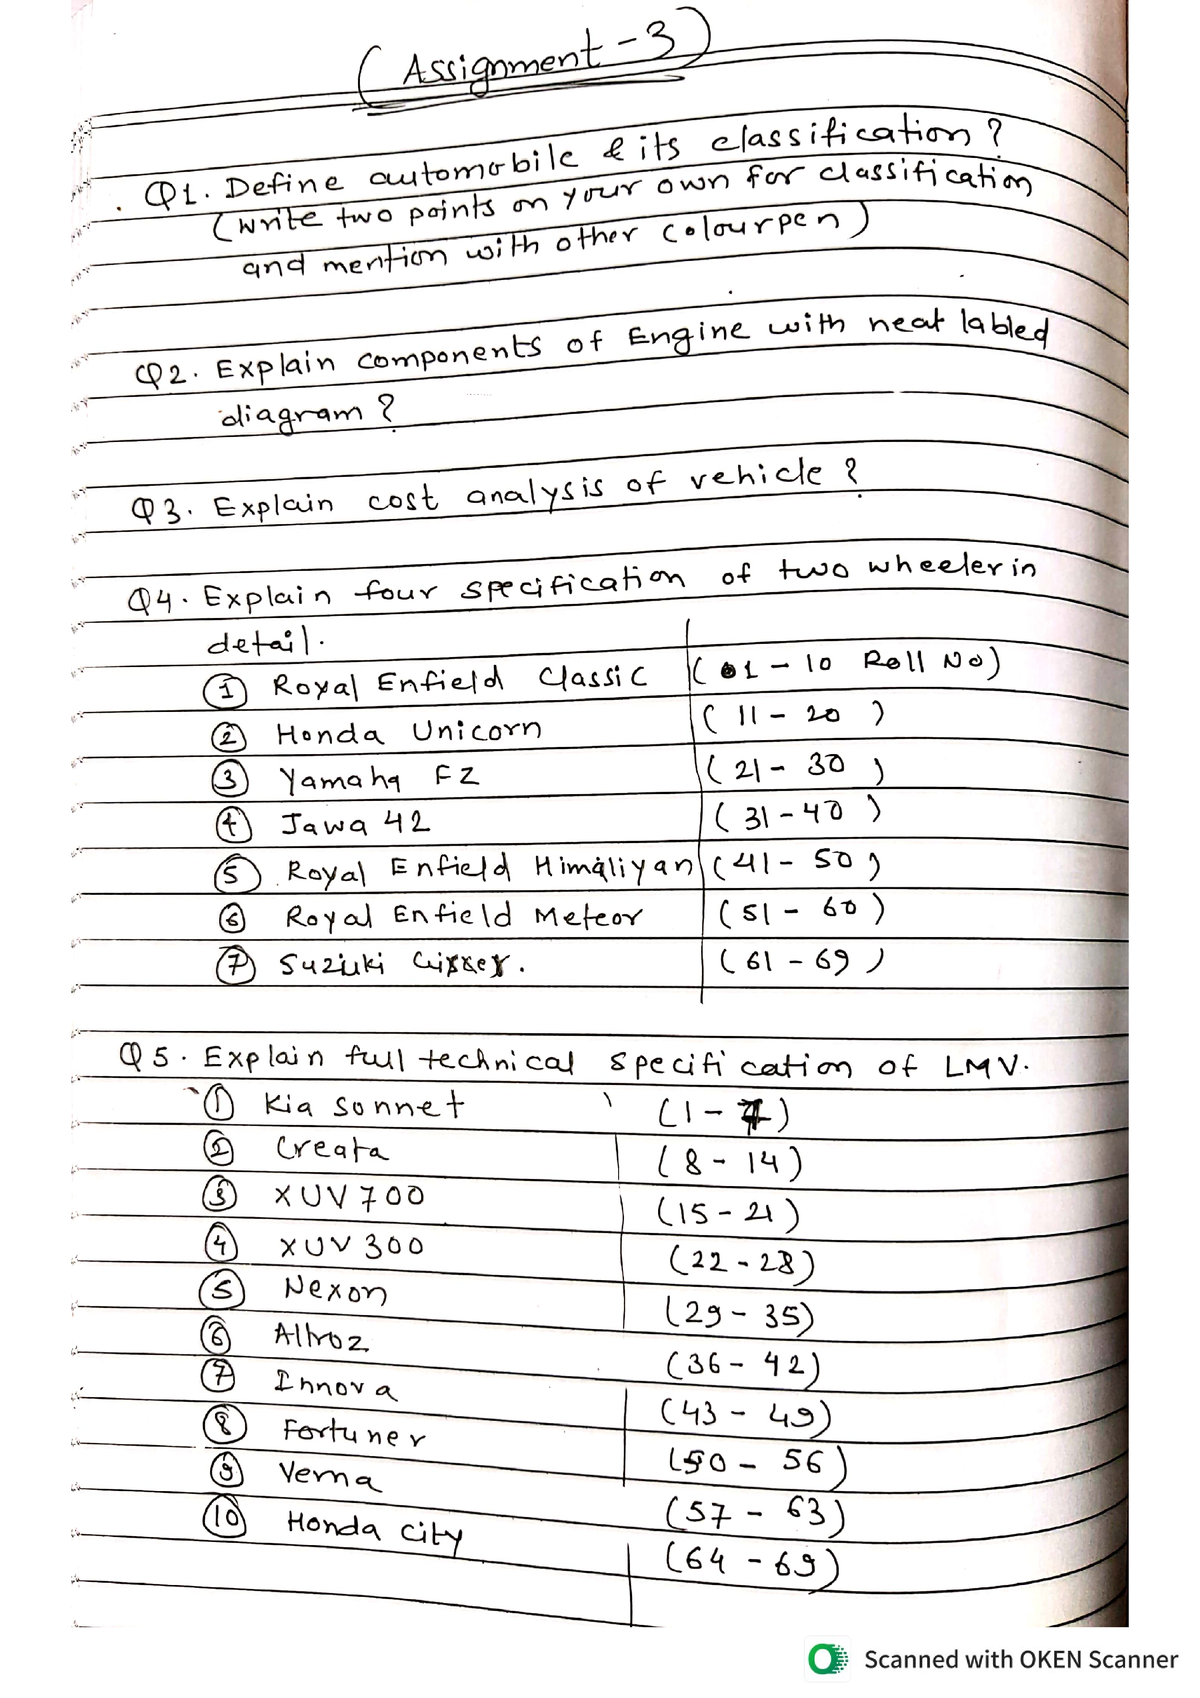 (Assignment - 3)
Q1. Define automobile & its classification?
(write two points on your own for classification
and mention with other colourpen)
Q2. Explain components of Engine with neat labled
diagram?
Q3. Explain cost analysis of vehicle?
Q4. Explain four specification of two wheeler in
detail.
① Royal Enfield Classic (01 - 10 Roll No)
② Honda Unicorn (11 - 20)
③ Yamaha FZ (21 - 30)
④ Jawa 42 (31 - 40)
⑤ Royal Enfield Himaliyan (41 - 50)
⑥ Royal Enfield Meteor (51 - 60)
⑦ Suziuki (61 - 69)
Q5. Explain full technical specification of LMV.
① Kia sonnet (1 - 7)
② Creata (8 - 14)
③ XUV 700 (15 - 21)
④ XUV 300 (22 - 28)
⑤ Nexon (29 - 35)
⑥ Altroz (36 - 42)
⑦ Innova (43 - 49)
⑧ Fortuner (50 - 56)
⑨ Verna (57 - 63)
⑩ Honda city (64 - 69)
Scanned with OKEN Scanner